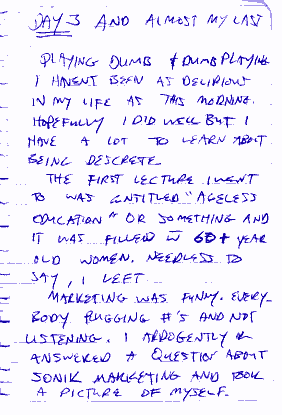 DAY 3 AND ALMOST MY LAST
PLAYING DUMB & DUMB PLAYING
I HAVENT BEEN AS DELIRIOUS
IN MY LIFE AS THIS MORNING.
HOPEFULLY I DID WELL BUT I
HAVE A LOT TO LEARN ABOUT
BEING DESCRETE
THE FIRST LECTURE I WENT
TO WAS ENTITLED "AGELESS
EDUCATION" OR SOMETHING AND
IT WAS FILLED W 60+ YEAR
OLD WOMEN. NEEDLESS TO
SAY, I LEFT
MARKETING WAS FUNNY. EVERY-
BODY PLUGGING #'S AND NOT
LISTENING. I ARROGENTLY
ANSWERED A QUESTION ABOUT
SONIK MARKETING AND TOOK
A PICTURE OF MYSELF.